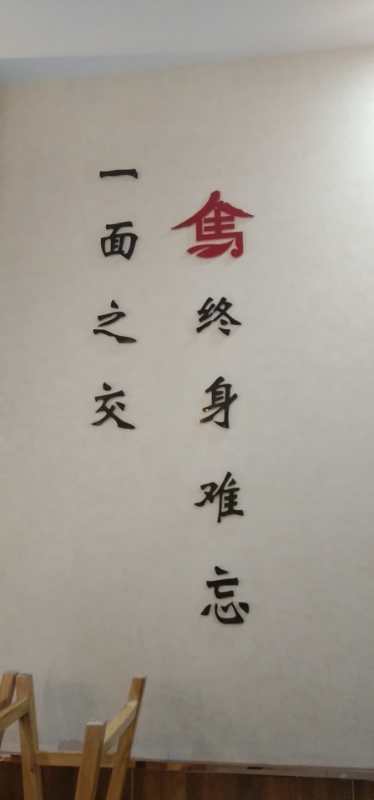 一面之交
终身难忘